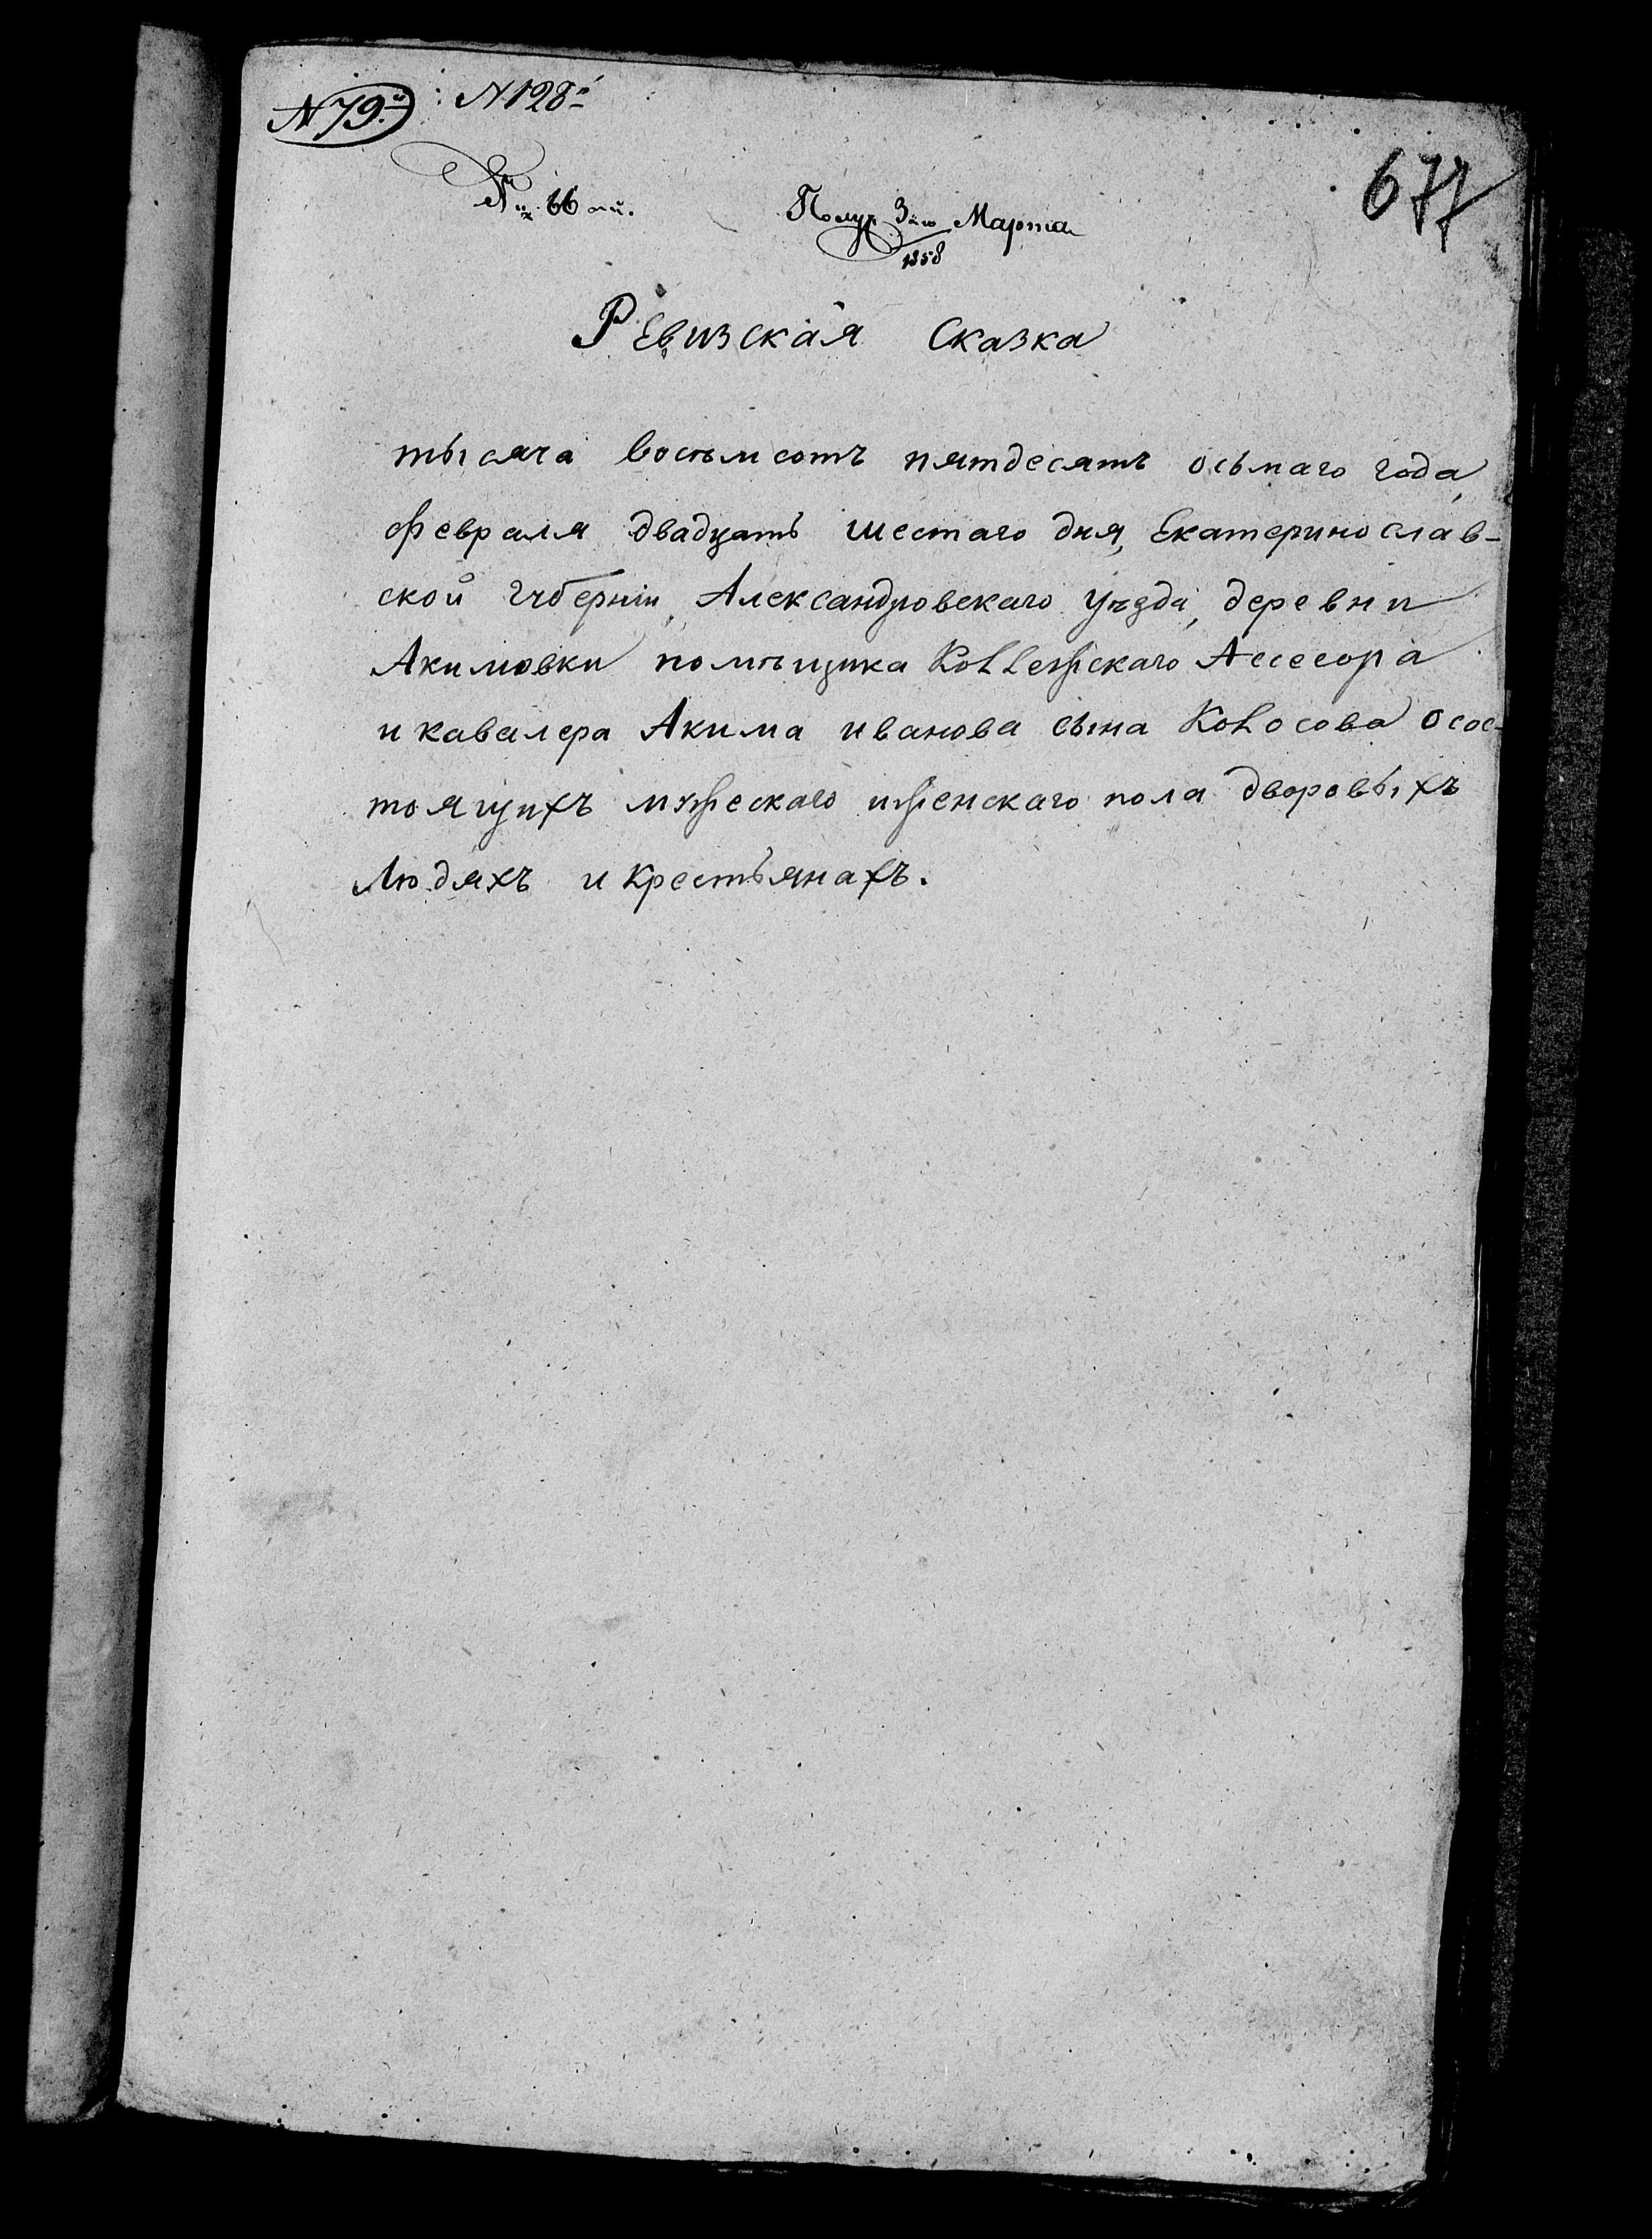 N 79й : N 128й
677
N 66 ой.
Получ 3го Марта
1858
Ревизская Сказка
тысяча восъмсотъ пятдесятъ осьмаго года,
февраля двадцать шестаго дня, Екатеринослав-
ской губерніи, Александровскаго уѣзда, деревни
Акимовки помѣщика Коллежскаго Ассесора
и кавалера Акима иванова сына Колосова осос-
тоящихъ мужескаго иженскаго пола дворовыхъ
Людяхъ и крестьянахъ.